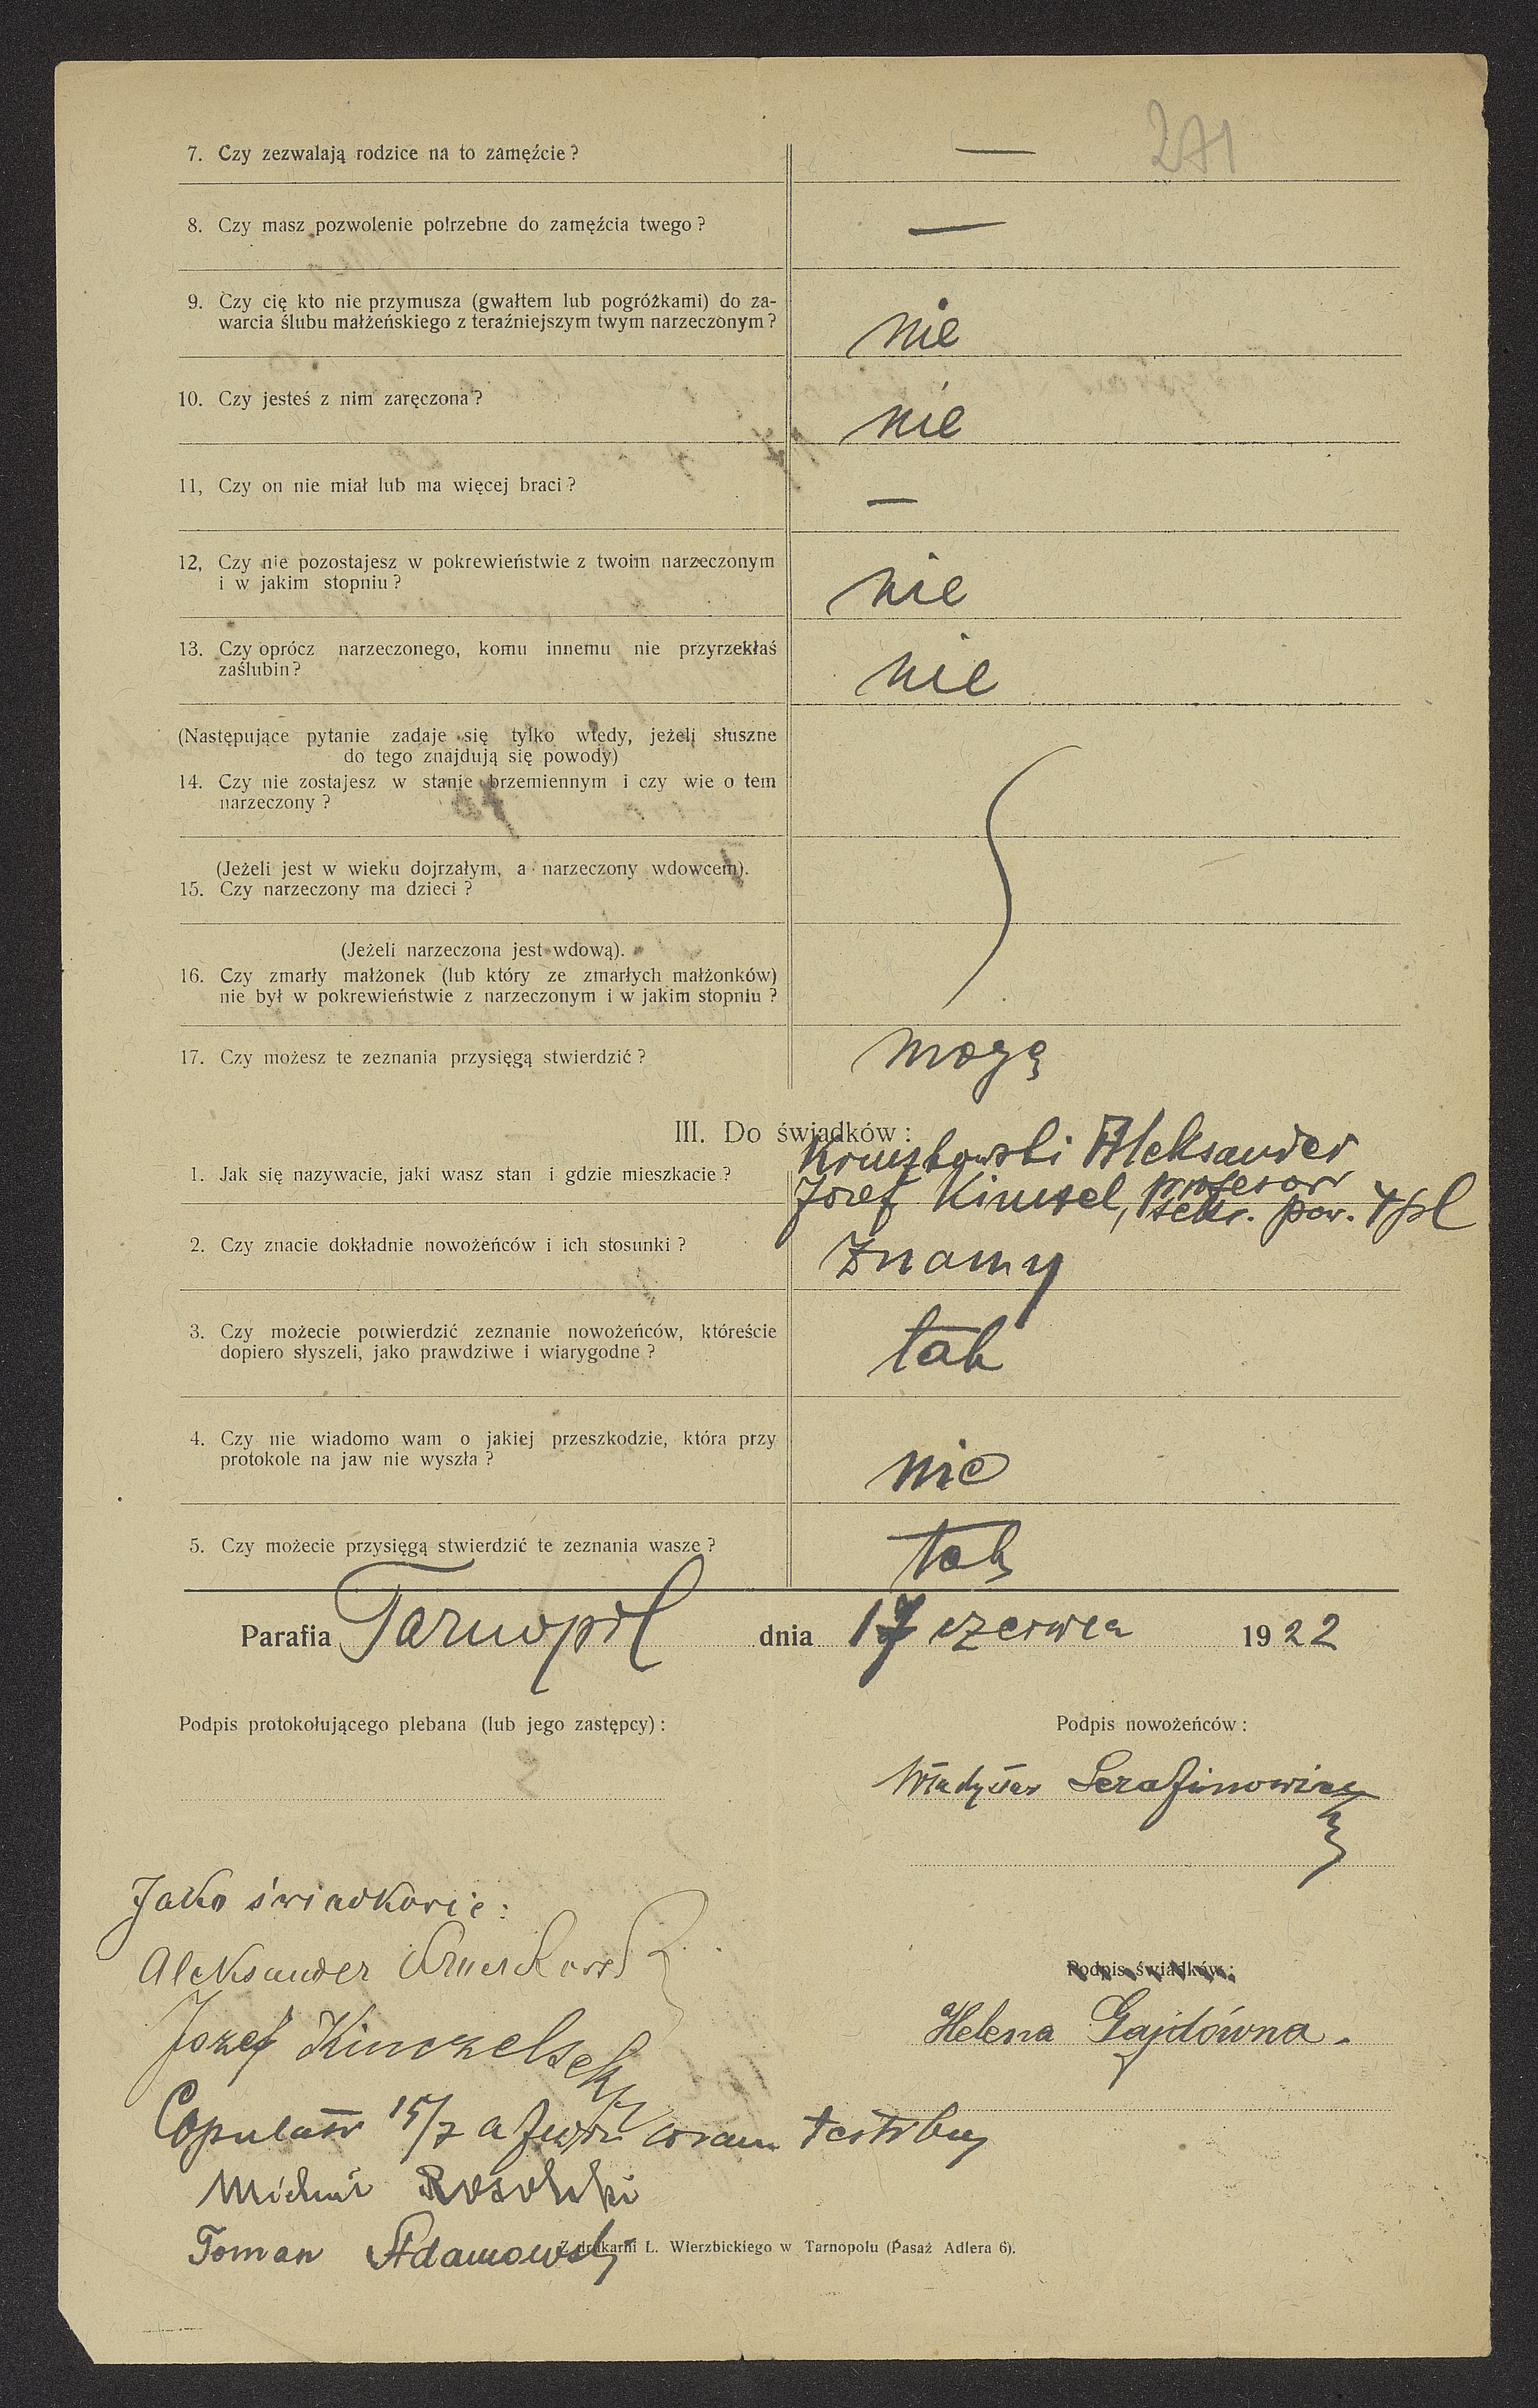 271
7. Czy zezwalają rodzice na to zamęźcie? —
8. Czy masz pozwolenie potrzebne do zamęźcia twego? —
9. Czy cię kto nie przymusza (gwałtem lub pogróżkami) do za-
warcia ślubu małżeńskiego z teraźniejszym twym narzeczonym? nie
10. Czy jesteś z nim zaręczona? nie
11, Czy on nie miał lub ma więcej braci? —
12, Czy nie pozostajesz w pokrewieństwie z twoim narzeczonym
i w jakim stopniu? nie
13. Czy oprócz narzeczonego, komu innemu nie przyrzekłaś
zaślubin? nie
(Następujące pytanie zadaje się tylko wtedy, jeżeli słuszne
do tego znajdują się powody)
14. Czy nie zostajesz w stanie brzemiennym i czy wie o tem
narzeczony?
(Jeżeli jest w wieku dojrzałym, a narzeczony wdowcem).
15. Czy narzeczony ma dzieci?
(Jeżeli narzeczona jest wdową).
16. Czy zmarły małżonek (lub który ze zmarłych małżonków)
nie był w pokrewieństwie z narzeczonym i w jakim stopniu?
17. Czy możesz te zeznania przysięgą stwierdzić? mogę
III. Do świadków:
Aleksander
1. Jak się nazywacie, jaki wasz stan i gdzie mieszkacie? profesor
Józef sekr. pow. Tpl
2. Czy znacie dokładnie nowożeńców i ich stosunki? znamy
3. Czy możecie potwierdzić zeznanie nowożeńców, któreście
dopiero słyszeli, jako prawdziwe i wiarygodne? tak
4. Czy nie wiadomo wam o jakiej przeszkodzie, która przy
protokole na jaw nie wyszła? nie
5. Czy możecie przysięgą stwierdzić te zeznania wasze? tak
Parafia Tarnopol dnia 17 czerwca 1922
Podpis protokołującego plebana (lub jego zastępcy): Podpis nowożeńców:
Władysław Serafinowicz
Jako świadkowie:
Aleksander
Podpis świadków:
Józef
Helena Gajdówna.
15/7 coram testibus
Michał
Roman Adamowski
Z drukarni L. Wierzbickiego w Tarnopolu (Pasaż Adlera 6).